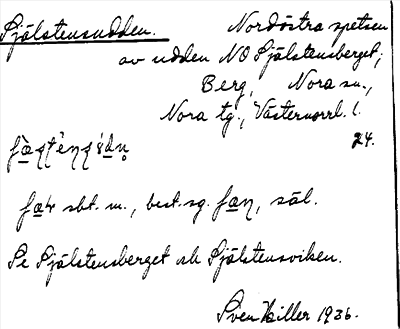 Själstensudden. Nordöstra spetsen
av udden NO Själstensberget;
Berg, Nora sn.,
Nora tg., Västernorrl. l.
24.
sbt. m., best. sg. själ.
Se Själstensberget och Själstensviken.
Sven Hiller 1936.